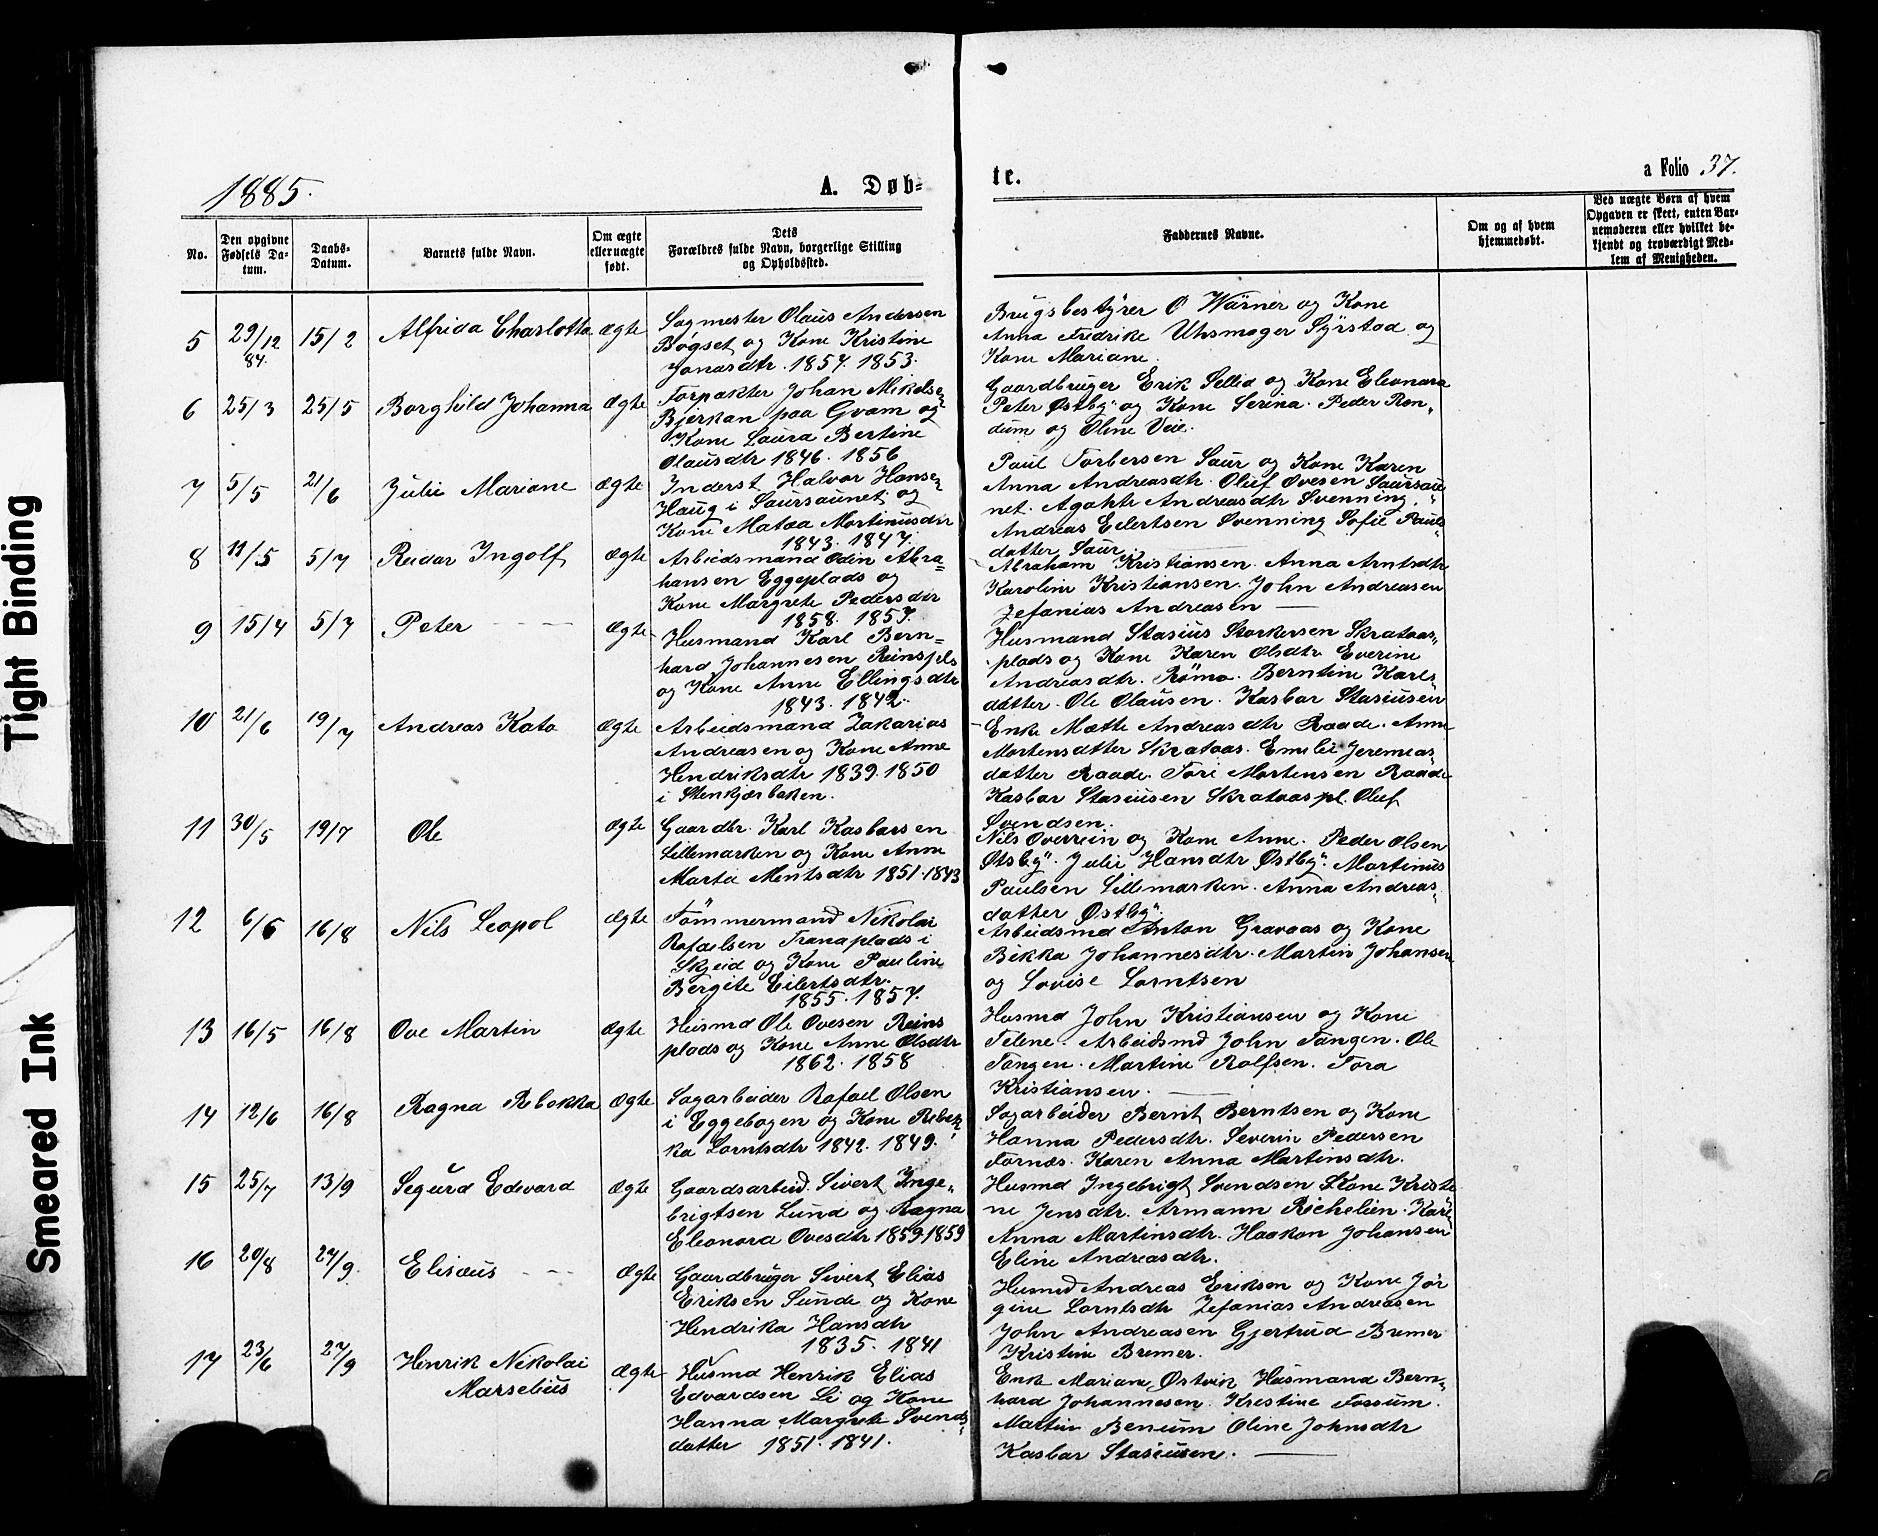 Tight Binding
Smeared Ink
1885.
A. Døb-
te.
a Folio 37.
No.
Den opgivne
Fødsels Da-
tum.
Daabs-
Datum.
Barnets fulde Navn.
Om ægte
eller uægte
født.
Dets
Forældres fulde Navn, borgerlige Stilling
og Opholdssted.
Faddernes Navne.
Om og af hvem
hjemmedøbt.
Ved uægte Børn af hvem
Opgaven er skeet, enten Bar-
nemoderen eller hvilket be-
kjendt og troværdigt Med-
lem af Menigheden.
5 29/12 84. 15/2 Alfrida Charlotta ægte
Sagmester Olaus Andersen
Bogset og Kone Kristine
Jonasdtr. 1857. 1853.
Brugsbestyrer O Wärner og Kone
Anna Fredrike Uhrmager Syrstad og
Kone Mariane.
6 25/3 25/5 Borghild Johanna ægte
Forpakter Johan Mikelse-
Bjerkan paa Gvam og
Kone Laura Bertine
Olausdtr 1846. 1856
Gaardbruger Erik Sellid og Kone Eleonara
Peter Østby og Kone Serina. Peder Ron-
dum og Oline Veie.
7 5/5 21/6 Julie Mariane ægte
Inderst Halvor Hanse-
Haug i Saursaunet og
Kone Matea Mortinusdtr
1843. 1847.
Paul Torbersen Saur og Kone Karen
Anna Andreasdtr. Oluf Ovesen Saursau
net. Agathe Andreasdtr Svenning.
Andreas Eilertsen Svenning Sofie Pauls
datter Saur.
8 11/5 5/7 Reidar Ingolf ægte
Arbeidsmand Odin Abra-
hansen Eggeplads og
Kone Margrete Pedersdtr
1858. 1857.
Abraham Kristiansen. Anna Arntsdtr
Karoline Kristiansen. John Andreasen
Zefanias Andreasen
9 15/4 5/7 Peter ægte
Husmand Karl Bern-
hard Johannesen Reinspls
og Kone Anne Ellingsdtr
1843. 1842.
Husmand Stasius Storkersen Skrataas-
plads og Kone Karen Olsdtr Everine
Andreasdtr. Rømo. Berntine Karls-
datter. Ole Olausen. Kasbar Stasiusen
10 21/6 19/7 Andreas Kato ægte
Arbeidsmand Zakarias
Andreasen og Kone Anne
Hendriksdtr 1839. 1850
i Stenkjærbaken.
Enke Mætte Andreasdtr Raade. Anne
Mortensdatter Skrataas. Emilie Jeremias-
datter Raade. Tore Mortensen Raade
Kasbar Stasiusen Skrataaspl. Oluf
Svendsen.
11 30/5 19/7 Ole ægte
Gaardbr. Karl Kasbarsen
Lillemarken og Kone Anne
Marta Mentsdtr 1851. 1843
Nils Overrein og Kone Anne. Peder Olsen
Østby. Julie Hansdtr Østby. Martinus
Paulsen Lillemarken. Anna Andreas-
datter Østby
12 6/6 16/8 Nils Leopol ægte
Tømmermand Nikolai
Rafaelsen Tranaplads i
Skjeid og Kone Pauline
Bergite Eilertsdtr.
1855. 1857.
Arbeidsmd Anton Gravaas og Kone
Bikka Johannesdtr. Martin Johansen
og Lovise Lorntsen
13 16/5 16/8 Ove Martin ægte
Husmd Ole Ovesen Reins
plads og Kone Anne Olsdtr
1862. 1858
Husmd John Kristiansen og Kone
Telene. Arbeidsmd John Tangen. Ole
Tangen. Martine Rolfsen. Tora
Kristiansen.
14 12/6 16/8 Ragna Rebekka ægte
Sagarbeider Rafael Olsen
i Eggebogen og Kone Rebek-
ka Lorntsdtr 1842. 1849.
Sagarbeider Bernt Berntsen og Kone
Hanna Pedersdtr. Severin Pedersen
Fornæs. Karen Anna Martinsdtr.
15 25/7 13/9 Segurd Edvard ægte
Gaardsarbeid. Sivert Inge-
brigtsen Lund og Ragna
Eleonora Ovesdtr 1859. 1859
Husmd Ingebrigt Svendsen Kone Kriste
ne Jensdtr. Armann Richelien. Kare-
Anna Martinsdtr. Haakon Johansen
Eline Andreasdtr.
16 20/8 27/9. Elisæus ægte
Gaardbruger Sivert Elias
Eriksen Sunde og Kone
Hendrika Hansdtr
1835. 1841
Husmd Andreas Eriksen og Kone Jør
gine Lorntsdtr Zefanias Andreasen
John Andreasen Gjertrud Bremer
Kristine Bremer.
17 23/6 27/9 Henrik Nikolai
Marselius ægte
Husmd Henrik Elias
Edvardsen Li og Kone
Hanna Margrete Svends-
datter 1851. 1841.
Enke Mariane Østvik Husmand Bern-
hard Johannesen. Kristine Fossum.
Martin Benum Oline Johnsdtr
Kasbar Stasiusen.